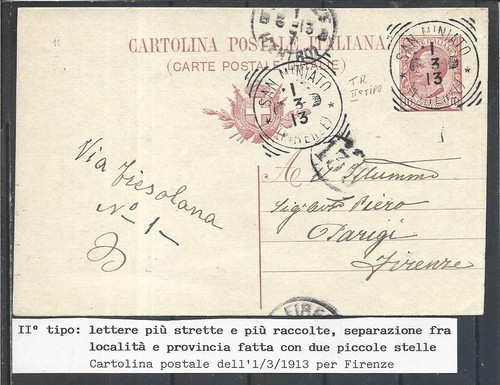 11
CARTOLINA POSTALE ITALIANA
(CARTE POSTALE
SAN MINIATO
1
3
13
(FIRENZE)
SAN MINIATO
1
3
13
(FIRENZE)
T.R.
II° TIPO
Via Fiesolana
N° 1
A
Piero
Parigi
Firenze
FIRE
II° tipo: lettere più strette e più raccolte, separazione fra
località e provincia fatta con due piccole stelle
Cartolina postale dell'1/3/1913 per Firenze